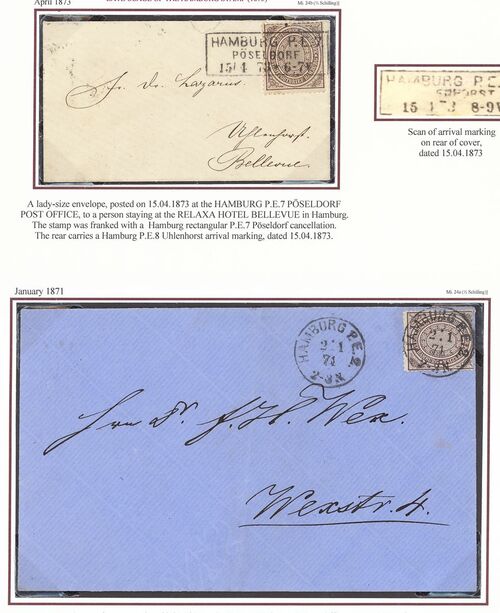 April 1873
Mi. 24b (½ Schilling)]
HAMBURG P.E.7
PÖSELDORF
15/4 73 * 6-7N
Dr. Lazarus.
Uhlenhorst.
Bellevue.
HAMBURG P.E.
15 4 73 8-9V
Scan of arrival marking
on rear of cover,
dated 15.04.1873
A lady-size envelope, posted on 15.04.1873 at the HAMBURG P.E.7 PÖSELDORF
POST OFFICE, to a person staying at the RELAXA HOTEL BELLEVUE in Hamburg.
The stamp was franked with a Hamburg rectangular P.E.7 Pöseldorf cancellation.
The rear carries a Hamburg P.E.8 Uhlenhorst arrival marking, dated 15.04.1873.
January 1871
Mi. 24a (½ Schilling)]
HAMBURG P.E.2
2 1
71
2-3N
HAMBURG P.E.2
2 1
71
2-3N.
Herrn Dr. J. H. Wex.
Wexstr. 4.